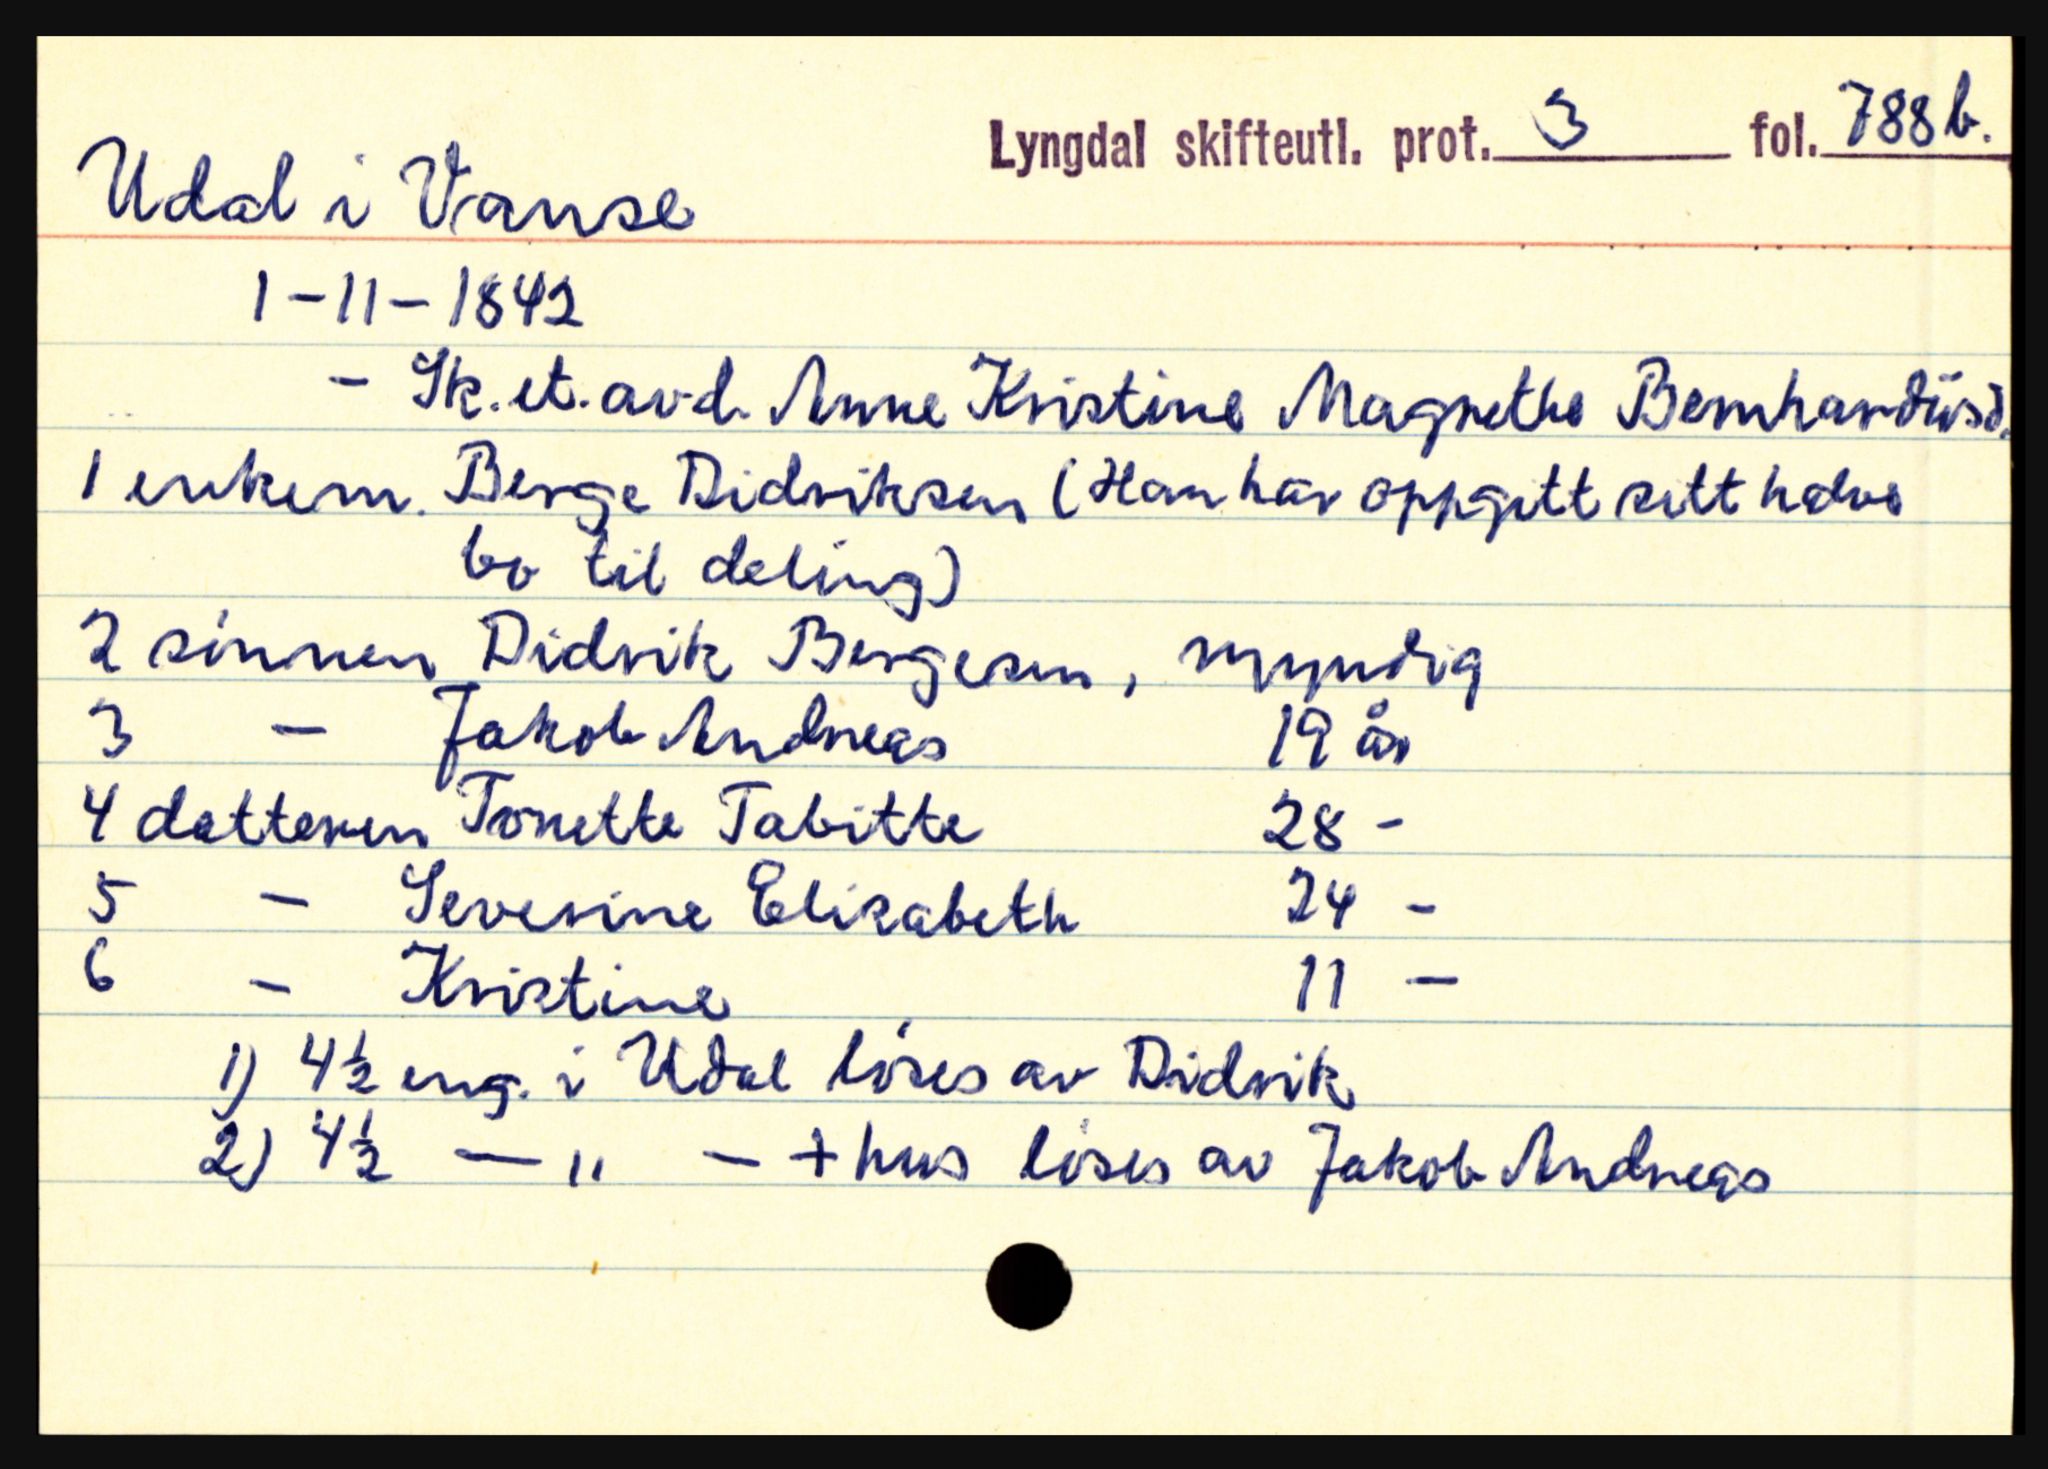 Lyngdal skifteutl. prot. 3 fol. 788 b.
Udal i Vanse
1-11-1842
- Sk. et. avd. Anne Kristine Magrethe Bernhardusd.
1 enkem. Berge Didriksen (Han har oppgitt sitt halve
bo til deling)
2 sönnen Didrik Bergesen, myndig
3 - Jakob Andreas 19 år
4 datteren Tonette Tabitte 28 -
5 - Severine Elisabeth 24 -
6 - Kristine 11 -
1) 4½ eng. i Udal löses av Didrik
2) 4½ — " - + hus löses av Jakob Andreas